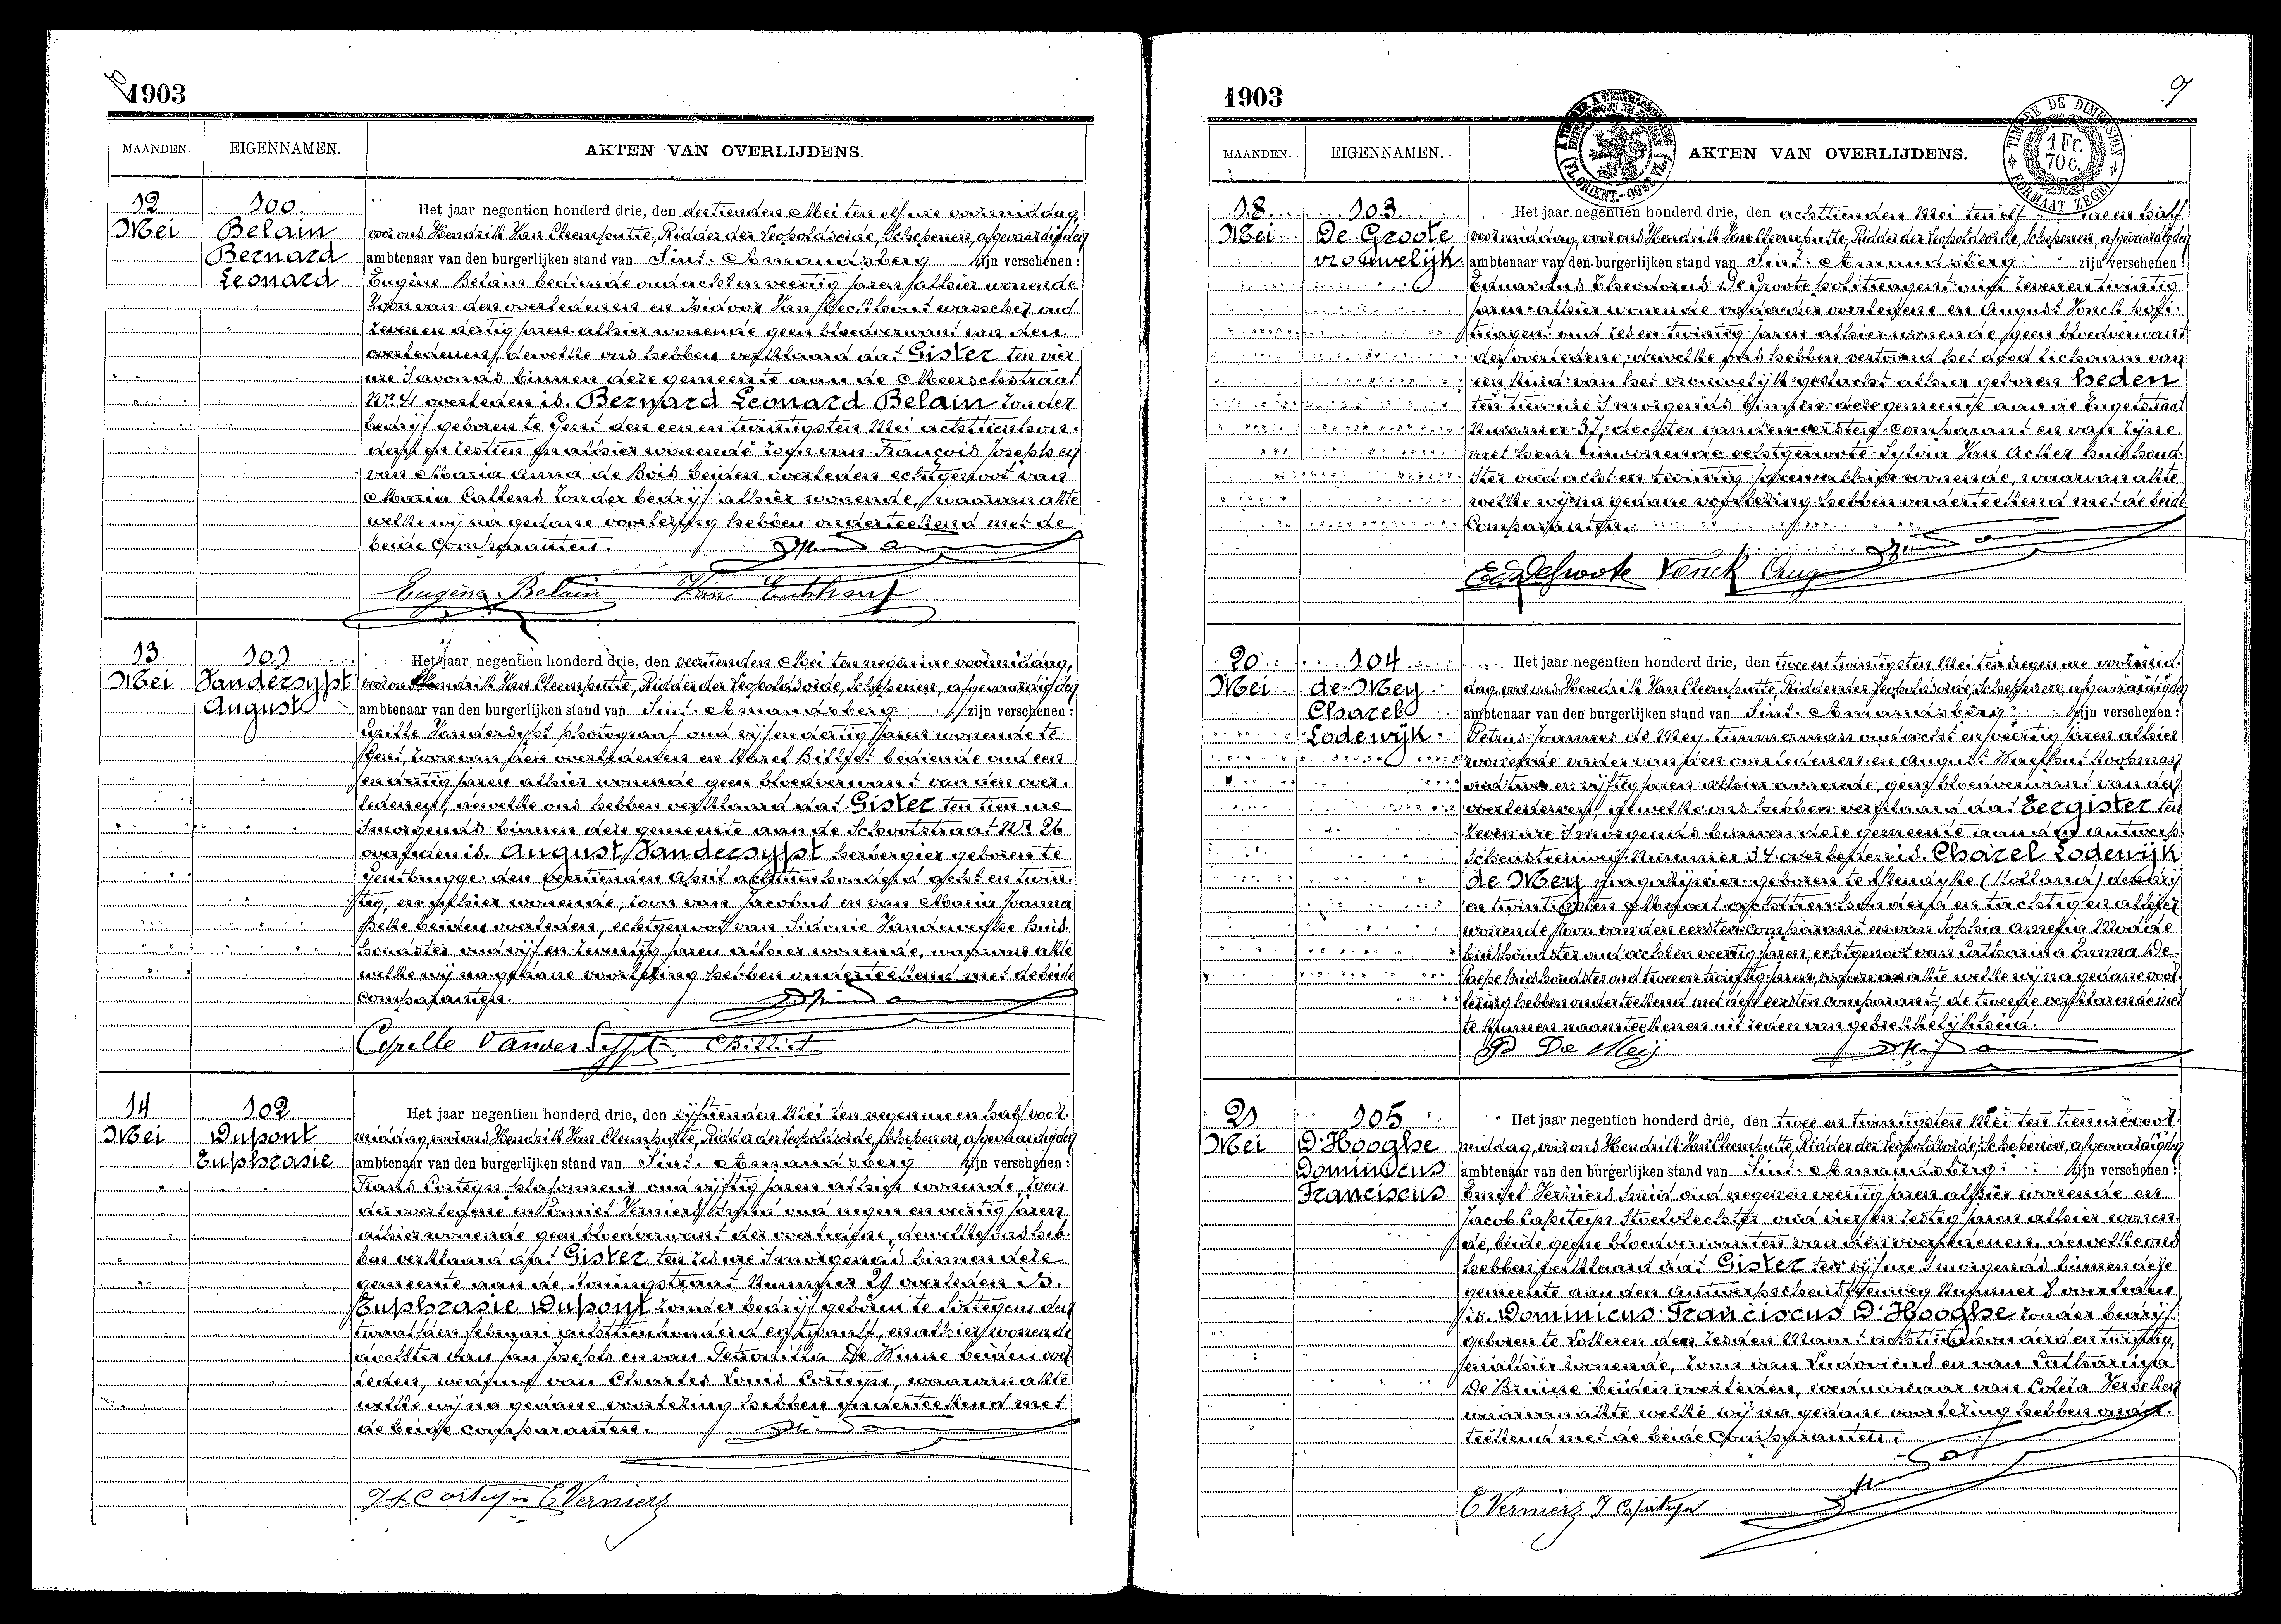 1903
MAANDEN. EIGENNAMEN. AKTEN VAN OVERLIJDENS.
12 Mei
100
Belain
Bernard
Leonard
Het jaar negentien honderd drie, den dertienden Mei ten elf ure voormiddag,
voor ons Hendrik Van Cleemputte, Ridder der Leopoldsorde, Schepenen, afgevaardigden
ambtenaar van den burgerlijken stand van Sint-Amandsberg zijn verschenen:
Eugène Belain bediende oud acht en veertig jaren alhier wonende
zoon van den overledenen en Isidoor Van Eeckhout wasscher oud
zeven en dertig jaren alhier wonende geen bloedverwant van den
overledenen, dewelke ons hebben verklaard dat Gister ten vier
ure 's avonds binnen deze gemeente aan de Meerschstraat
Nr 41 overleden is. Bernard Leonard Belain zonder
bedrijf geboren te Gent den een en twintigsten Mei achttienhon-
derd en zestien en alhier wonende zoon van François Joseph en
van Maria Anna de Bois beiden overleden echtgenoot van
Maria Callens zonder bedrijf alhier wonende, waarvan akte
welke wij na gedane voorlezing hebben onderteekend met de
beide Comparanten.
Eugène Belain Van Eeckhout
13 Mei
101
Vandersypt
August
Het jaar negentien honderd drie, den veertienden Mei ten negen ure voormiddag,
voor ons Hendrik Van Cleemputte, Ridder der Leopoldsorde, Schepenen, afgevaardigden
ambtenaar van den burgerlijken stand van Sint-Amandsberg zijn verschenen:
Vandersypt photograaf oud vijf en dertig jaren wonende te
Gent, zoon van den overledenen en Karel Billiet bediende oud een
en dertig jaren alhier wonende geen bloedverwant van den over-
ledenen, dewelke ons hebben verklaard dat Gister ten tien ure
's morgends binnen deze gemeente aan de Schoolstraat Nr 26
overleden is. August Vandersypt herbergier geboren te
Gentbrugge den veertienden April achttienhonderd acht en twin-
tig, en alhier wonende, zoon van Jacobus en van Maria Joanna
Beke beiden overleden, echtgenoot van Sidonie Vandeweghe huis-
houdster oud vijf en zeventig jaren alhier wonende, waarvan akte
welke wij na gedane voorlezing hebben onderteekend met de beide
comparanten.
Cyrille Vandersypt Billiet
14 Mei
102
Dupont
Euphrasie
Het jaar negentien honderd drie, den vijftienden Mei ten negen ure en half voor-
middag, voor ons Hendrik Van Cleemputte, Ridder der Leopoldsorde, Schepenen, afgevaardigden
ambtenaar van den burgerlijken stand van Sint-Amandsberg zijn verschenen:
Frans Corteyn plafonneur oud vijftig jaren alhier wonende, zoon
der overledene en Emiel Verniers Smid oud negen en veertig jaren
alhier wonende geen bloedverwant der overledene, dewelke ons heb-
ben verklaard dat Gister ten zes ure 's morgends binnen deze
gemeente aan de Koningstraat Nummer 29 overleden is.
Euphrasie Dupont zonder bedrijf geboren te Sottegem den
twaalfden februari achttienhonderd en twaalf, en alhier wonende
dochter van Jan Joseph en van Petronilla De Winne beiden over-
leden, weduwe van Charles Louis Corteyn, waarvan akte
welke wij na gedane voorlezing hebben onderteekend met
de beide comparanten.
Corteyn E Verniers
1903
9
TIMBRE DE DIMENSION
1 Fr. 70 c.
FORMAAT ZEGEL
MAANDEN. EIGENNAMEN. AKTEN VAN OVERLIJDENS.
18 Mei
103
De Groote
vrouwelijk
Het jaar negentien honderd drie, den achttienden Mei ten elf ure en half
voormiddag, voor ons Hendrik Van Cleemputte, Ridder der Leopoldsorde, Schepenen, afgevaardigden
ambtenaar van den burgerlijken stand van Sint-Amandsberg zijn verschenen:
Eduardus De Groote politieagent oud zeven en twintig
jaren alhier wonende vader der overledene en August Vonck poli-
tieagent oud zes en twintig jaren alhier wonende, geen bloedverwant
der overledene, dewelke ons hebben vertoond het dood lichaam van
een kind van het vrouwelijk geslacht alhier geboren heden
ten tien ure 's morgends binnen deze gemeente aan de Engelstraat
Nummer 37, dochter van den eersten comparant en van zijne
met hem inwonende echtgenote Sylvia Van Acker huishoud-
ster oud acht en twintig jaren alhier wonende, waarvan akte
welke wij na gedane voorlezing hebben onderteekend met de beide
Comparanten.
Ed De Groote Vonck Aug
20 Mei
104
de Mey
Charel
Lodewijk
Het jaar negentien honderd drie, den twee en twintigsten Mei ten negen ure voormid-
dag, voor ons Hendrik Van Cleemputte, Ridder der Leopoldsorde, Schepenen, afgevaardigden
ambtenaar van den burgerlijken stand van Sint-Amandsberg zijn verschenen:
Petrus Joannes de Mey timmerman oud acht en veertig jaren alhier
wonende vader van den overledenen en August
oud twee en vijftig jaren alhier wonende, geen bloedverwant van den
overledenen, dewelke ons hebben verklaard dat Eergister ten
zeven ure 's morgends binnen deze gemeente aan den Antwerp-
schensteenweg Nummer 34 overleden is. Charel Lodewijk
de Mey magazijnier geboren te (Holland) den drij
en twintigsten achttien honderd en tachtig en alhier
wonende zoon van den eersten comparant en van Sophia Amelia
huishoudster oud acht en veertig jaren, echtgenoot van Catharina Emma De
huishoudster oud twee en twintig jaren, waarvan akte welke wij na gedane voor-
lezing hebben onderteekend met den eersten comparant, de tweede verklarende niet
te kunnen naamteekenen uit reden van gebrekkelijkheid.
P De Meij
21 Mei
105
D'Hooghe
Dominicus
Franciscus
Het jaar negentien honderd drie, den twee en twintigsten Mei ten tien ure voor-
middag, voor ons Hendrik Van Cleemputte, Ridder der Leopoldsorde, Schepenen, afgevaardigden
ambtenaar van den burgerlijken stand van Sint-Amandsberg zijn verschenen:
Emiel Verniers Smid oud negen en veertig jaren alhier wonende en
Jacob Capiteyn Stoelvlechter oud vier en zestig jaren alhier wonen-
de, beide geene bloedverwanten van den overledenen, dewelke ons
hebben verklaard dat Gister ten vijf ure 's morgends binnen deze
gemeente aan den Antwerpschensteenweg Nummer 8 overleden
is. Dominicus Franciscus D'Hooghe zonder bedrijf
geboren te Lotteren den zesden Maart achttien honderd en twintig,
en alhier wonende, zoon van Ludovicus en van Catharina
De Bruine beiden overleden, weduwnaar van Coleta Verbeken
waarvan akte welke wij na gedane voorlezing hebben onder-
teekend met de beide Comparanten.
E Verniers J Capiteyn